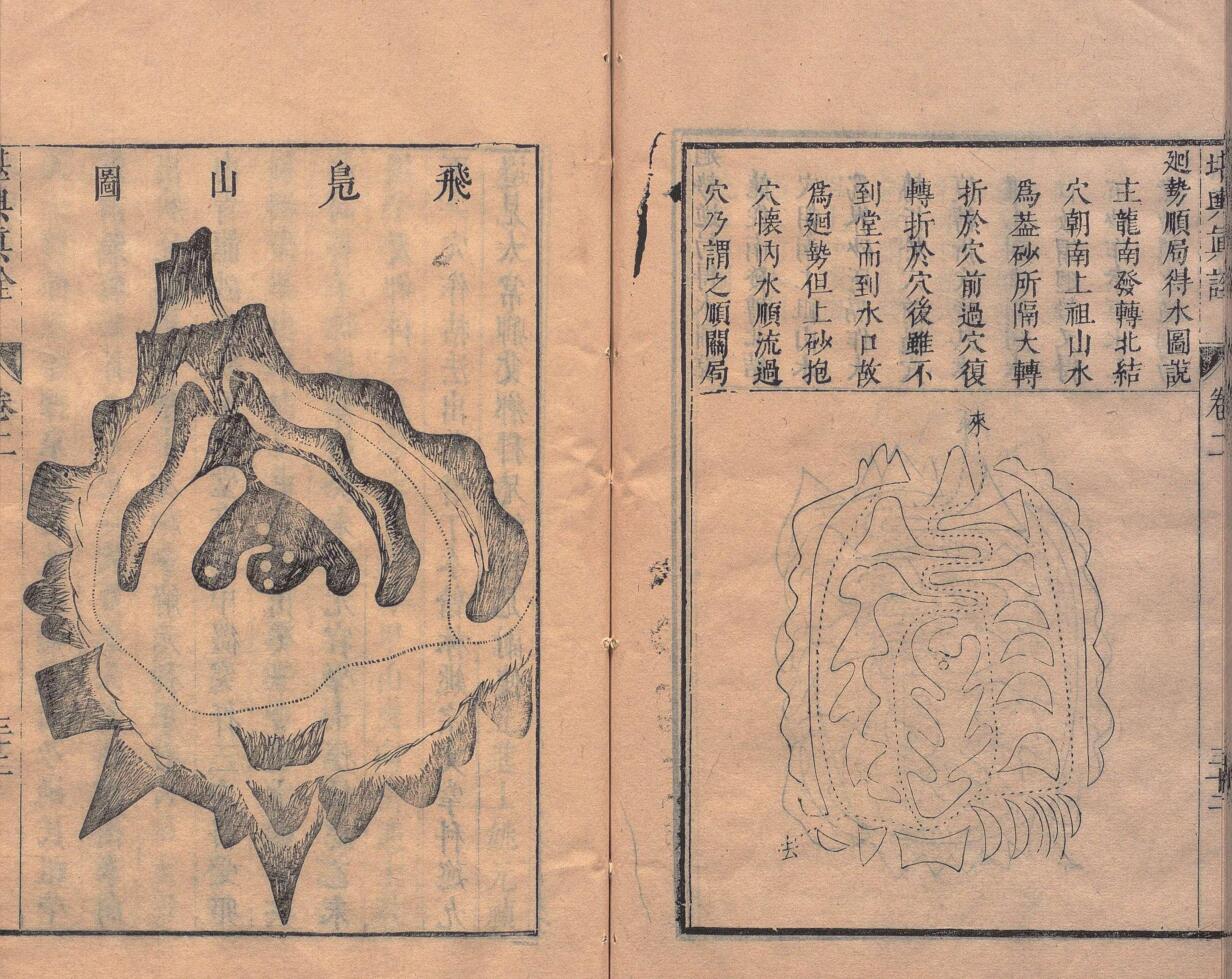 廻勢順局得水圖說
主龍南發轉北結
穴朝南上祖山水
爲葢砂所隔大轉
折於穴前過穴復
轉折於穴後雖不
到堂而到水口故
爲廻勢但上砂抱
穴懷内水順流過
穴乃謂之順關局
來
去
卷二
飛鳧山圖